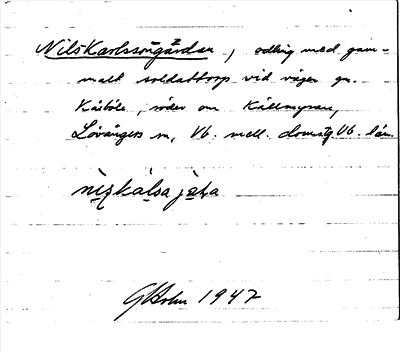 Nils Karlssongärdan, odling med gam-
malt soldattorp vid vägen gm.
Kåsböle, söder om Källmyran,
Lövångers sn, Vb. mell. domsg. Vb. län.
G Holm 1947